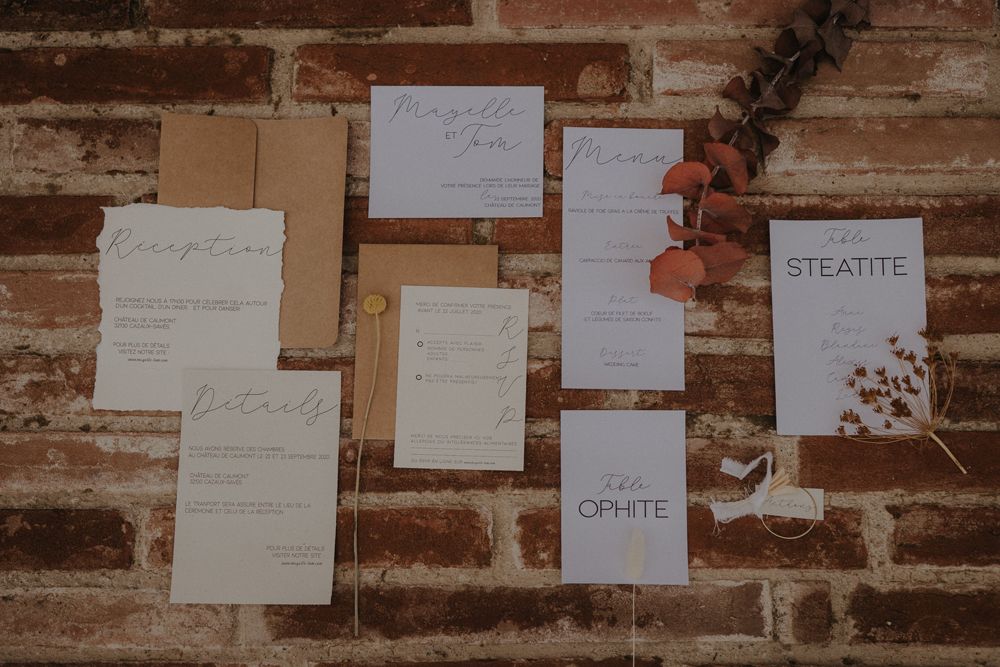 Réception
REJOIGNEZ NOUS À 17H00 POUR CÉLÉBRER CELA AUTOUR
D'UN COCKTAIL, D'UN DINER ET POUR DANSER!
CHÂTEAU DE CAUMONT
32100 CAZAUX-SAVÈS.
POUR PLUS DE DÉTAILS
VISITEZ NOTRE SITE :
Détails
NOUS AVONS RÉSERVÉ DES CHAMBRES
AU CHÂTEAU DE CAUMONT LE 22 ET 23 SEPTEMBRE 2023
CHÂTEAU DE CAUMONT
32100 CAZAUX-SAVÈS
LE TRANFORT SERA ASSURÉ ENTRE LE LIEU DE LA
CÉRÉMONIE ET CELUI DE LA RÉCEPTION.
POUR PLUS DE DÉTAILS
VISITER NOTRE SITE :
Mayelle
ET
Tom
DEMANDE L'HONNEUR DE
VOTRE PRÉSENCE LORS DE LEUR MARIAGE
les
23 SEPTEMBRE 2023
CHÂTEAU DE CAUMONT
MERCI DE CONFIRMER VOTRE PRÉSENCE
AVANT LE 22 JUILLET 2023
RSVP
M
ACCEPTE AVEC PLAISIR
NOMBRE DE PERSONNES
ADULTES
ENFANTS
NE POURRA MALHEUREUSEMENT
PAS ÊTRE PRÉSENT(E)
MERCI DE NOUS PRÉCISER ICI VOS
ALLERGIES OU INTOLÉRANCES ALIMENTAIRES
OU RSVP EN LIGNE SUR
Menu
Mise en bouche
RAVIOLE DE FOIE GRAS A LA CRÈME DE TRUFFES
Entrée
CARPACCIO DE CANARD AUX
Plat
COEUR DE FILET DE BOEUF
ET LÉGUMES DE SAISON CONFITS
Dessert
WEDDING CAKE
Table
OPHITE
Table
STEATITE
Anne